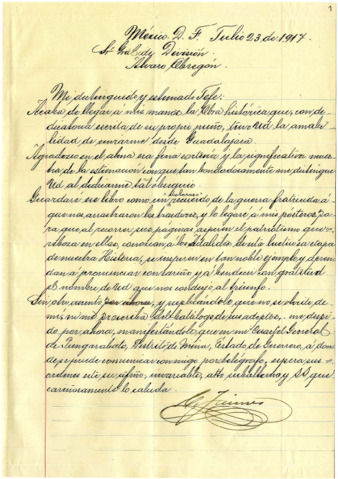 1
México D. F. Julio 23 de 1917.
Sr. Gral. de División.
Alvaro Obregón.
Mi distinguido y estimado Jefe:
Acaba de llegar a mis manos, la Obra histórica que, con de-
dicatoria escrita de su propio puño, tuvo Ud. la amabi-
lidad de enviarme desde Guadalajara.
Agradezco en el alma esa fina cortesía, y la significativa mues-
tra de la estimación con que tan bondadosamente me distingue
Ud. al dedicarme tal obsequio.
Guardaré su libro como un recuerdo de la guerra fratricida á
que nos arrastraron los traidores, y lo legaré á mis pósteros, pa-
ra que, al recorrer sus páginas aspiren el patriotismo que
rebosa en ellas, conozcan á los adalides de esta luctuosa etapa
de nuestra Historia, se inspiren en tan noble ejemplo y apren-
dan á pronunciar con cariño y á bendecir con gratitud
el nombre de Ud. que nos condujo al triunfo.
Sin otro asunto por ahora, y suplicándole que no se olvide de
mí, ni me proscriba del Catálogo de sus adeptos, me despi-
do por ahora, manifestándole que en mi Cuartel General
de Pungarabato, Distrito de Mina, Estado de Guerrero, á don-
de se puede comunicar conmigo por telégrafo, espera sus
órdenes este su afmo, invariable, atto. subalterno y S. S. que
cariñosamente lo saluda.